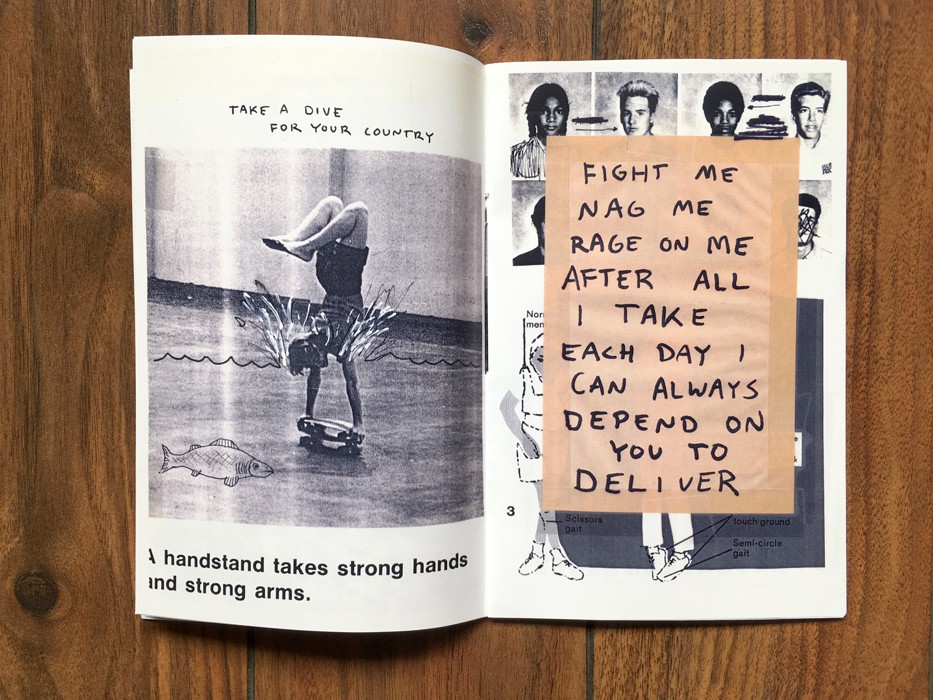 TAKE A DIVE
FOR YOUR COUNTRY
A handstand takes strong hands
and strong arms.
FIGHT ME
NAG ME
RAGE ON ME
AFTER ALL
I TAKE
EACH DAY I
CAN ALWAYS
DEPEND ON
YOU TO
DELIVER
3
Scissors
gait
touch ground
Semi-circle
gait